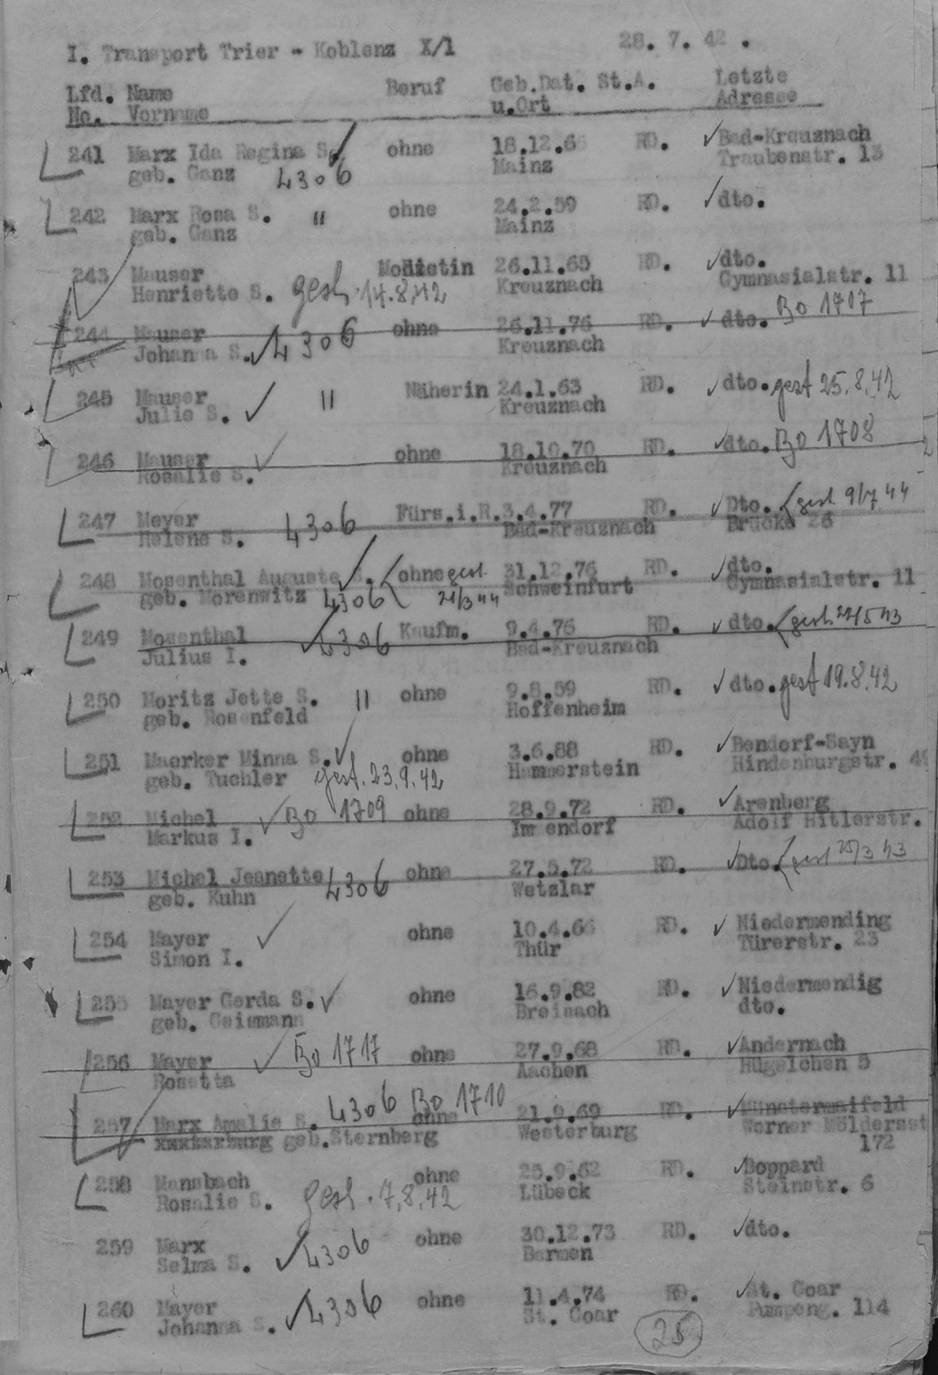 I. Transport Trier - Koblenz X/1 28. 7. 42 .
Lfd. Name Beruf Geb.Dat. St.A. Letzte
No. Vorname u.Ort Adresse
241 Marx Ida Regina S. ohne 18.12.66 RD. Bad-Kreuznach
geb. Ganz 4306 Mainz Traubenstr. 13
242 Marx Rosa S. " ohne 24.2.59 RD. dto.
geb. Ganz Mainz
243 Mauser Modistin 26.11.65 RD. dto.
Henriette S. gest. 14.8.42 Kreuznach Gymnasialstr. 11
244 Mauser ohne 26.11.76 RD. dto. Bo 1707
Johanna S. 4306 Kreuznach
245 Mauser Näherin 24.1.63 RD. dto. gest 25.8.42
Julie S. " Kreuznach
246 Mauser ohne 18.10.70 RD. dto. Bo 1708
Rosalie S. Kreuznach
247 Meyer Fürs.i.R. 3.4.77 RD. Dto. gest 9/7 44
Helene S. 4306 Bad-Kreuznach Brücke 26
248 Mosenthal Auguste S. ohne gest. 31.12.76 RD. dto.
geb. Morenwitz 4306 21/3 44 Schweinfurt Gymnasialstr. 11
249 Mosenthal Kaufm. 9.4.76 RD. dto. gest 22/5 43
Julius I. 4306 Bad-Kreuznach
250 Moritz Jette S. " ohne 9.8.59 RD. dto. gest 19.8.42
geb. Rosenfeld Hoffenheim
251 Maerker Minna S. ohne 3.6.88 RD. Bendorf-Sayn
geb. Tuchler gest. 23.9.42 Hammerstein Hindenburgstr.
252 Michel Bo 1709 ohne 28.9.72 RD. Arenberg
Markus I. Immendorf Adolf Hitlerstr.
253 Michel Jeanette 4306 ohne 27.5.72 RD. Dto. gest 25/3 43
geb. Kuhn Wetzlar
254 Mayer ohne 10.4.66 RD. Niedermending
Simon I. Thür Türerstr. 23
255 Mayer Gerda S. ohne 16.9.82 RD. Niedermendig
geb. Geismann Breisach dto.
256 Mayer Bo 1717 ohne 27.9.68 RD. Andernach
Rosetta Aachen Hügelchen 5
257 Marx Amalie S. 4306 Bo 1710 ohne 21.9.69 RD. Münstermaifeld
geb.Sternberg Westerburg Werner Möldersst
172
258 Mansbach ohne 25.9.62 RD. Boppard
Rosalie S. gest. 7.8.42 Lübeck Steinstr. 6
259 Marx ohne 30.12.73 RD. dto.
Selma S. 4306 Barmen
260 Mayer ohne 11.4.74 RD. St. Goar
Johanna S. 4306 St. Goar Pumpeng. 114
25